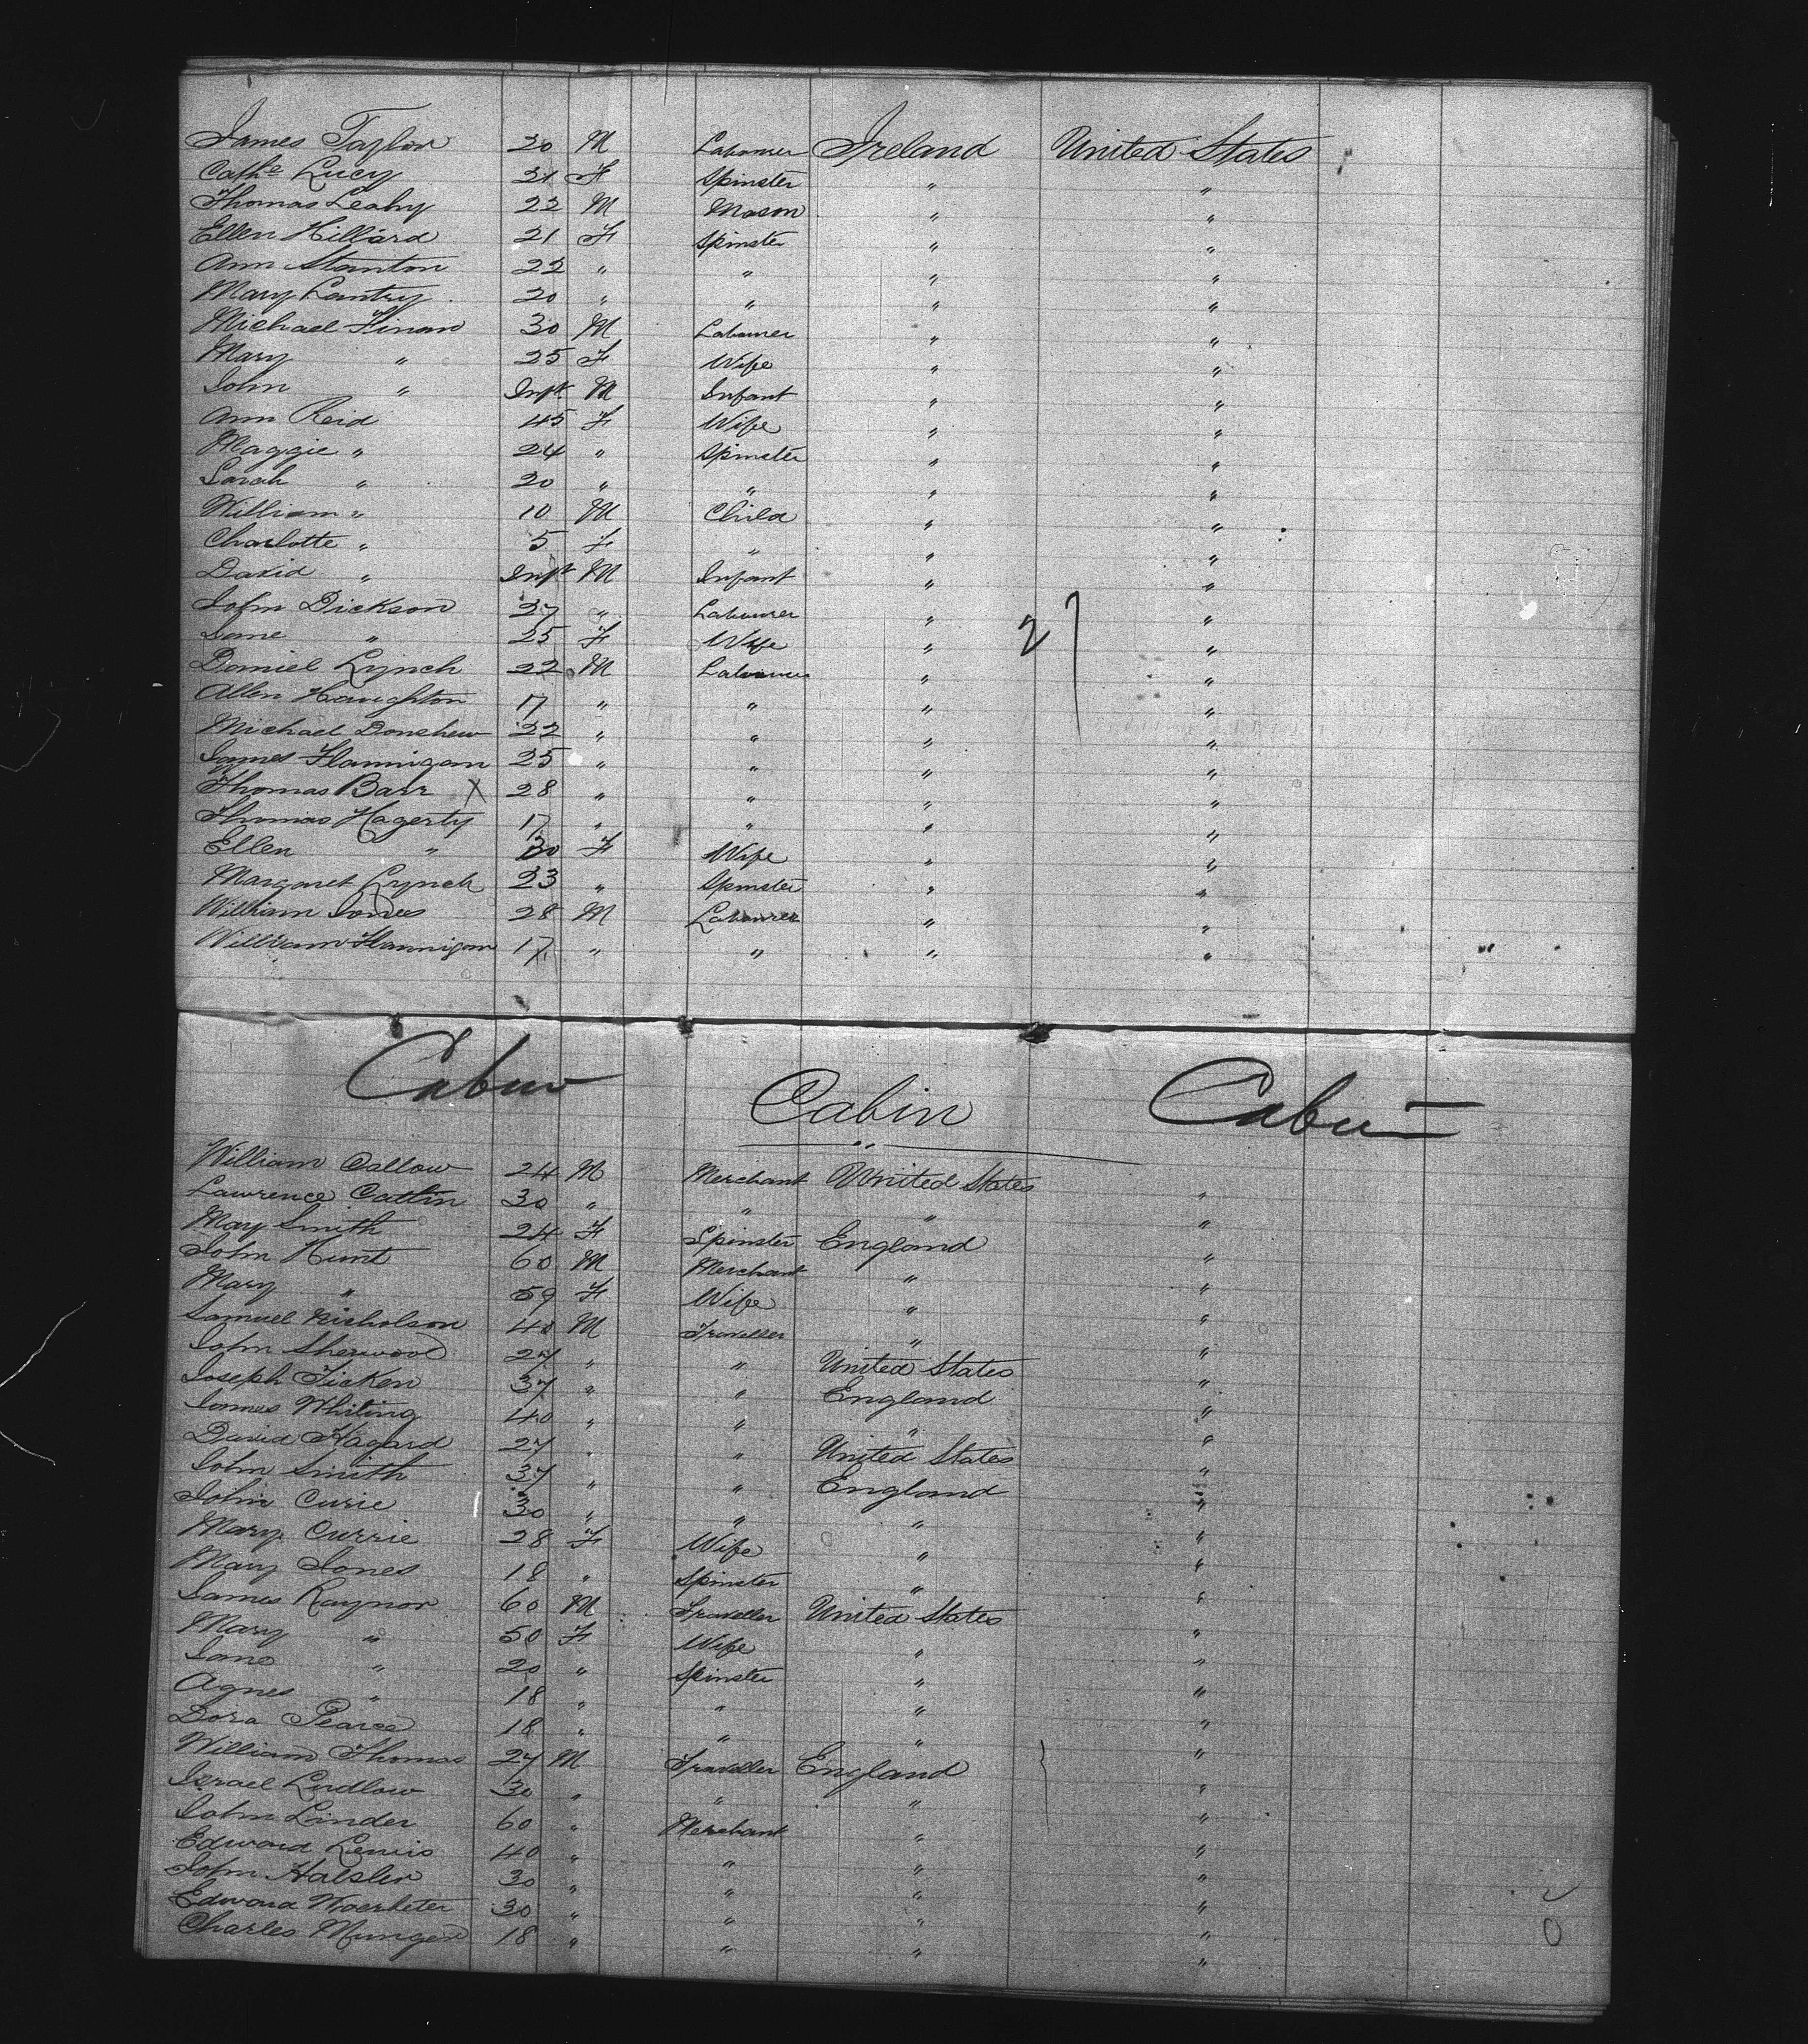 James Taylor 20 M Labourer Ireland United States
Cathe Lucy 21 F Spinster " "
Thomas Leahy 22 M Mason " "
Ellen Hilliard 21 F Spinster " "
Ann Stanton 22 " " " "
Mary Lantry 20 " " " "
Michael Finan 30 M Labourer " "
Mary " 25 F Wife " "
John " Inft M Infant " "
Ann Reid 45 F Wife " "
Maggie " 24 " Spinster " "
Sarah " 20 " " " "
William " 10 M Child " "
Charlotte " 5 F " " "
David " Inft M Infant " "
John Dickson 27 " Labourer " "
Jane " 25 F Wife " "
Daniel Lynch 22 M Labourer " "
Allen Haughton 17 " " " "
Michael Donshew 22 " " " "
James Flannigan 25 " " " "
Thomas Barr X 28 " " " "
Thomas Hagerty 17 " " " "
Ellen " 30 F Wife " "
Margaret Lynch 23 " Spinster " "
William Jones 28 M Labourer " "
William Flannigan 17 " " " "
Cabin Cabin Cabin
William Callow 24 M Merchant United States "
Lawrence Catlin 30 " " " "
Mary Smith 24 F Spinster England "
John Hunt 60 M Merchant " "
Mary " 59 F Wife " "
Samuel Nicholson 40 M Traveller " "
John Sherwood 27 " " United States "
Joseph Ticken 37 " " England "
James Whiting 40 " " " "
David Hagard 27 " " United States "
John Smith 37 " " England "
John Curie 30 " " " "
Mary Currie 28 F Wife " "
Mary Jones 18 " Spinster " "
James Raynor 60 M Traveller United States "
Mary " 50 F Wife " "
Jane " 20 " Spinster " "
Agnes " 18 " " " "
Dora Pearce 18 " " " "
William Thomas 27 M Traveller England "
Israel Ludlow 30 " " " "
John Linder 60 " Merchant " "
Edward Lewis 40 " " " "
John Halsler 30 " " " "
Edward 30 " " " "
Charles Munger 18 " " " "